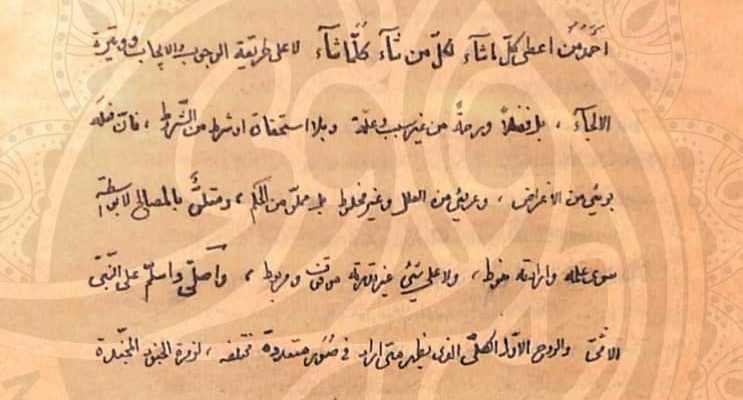 احمد من اعطى كلّ ما شآء لكلّ من شآء كلّما شآء لا على طريقة الوجوب والايجاب ووتيرة
الالجآء ، بل فضلاً ورحمةً من غير سبب وعلّة وبلا استحقاق او شرط من الشّرط ، فانّ فعله
برئ من الاغراض ، وعرىّ من العلل وغير مخلوط بل مملوّ من الحكم ، ومتلئٌّ بالمصالح لا بواسطة
سوى علمه وارادته منوط ، ولا على شئ غير قدرته موقوف ومربوط ، واصلّى واسلّم على النّبىّ
الامّىّ والروح الاوّل الكلّىّ الذى يظهر متى اراد فى صُوَر متعددة مختلفه ، لزمرة الجنود المجنّدة